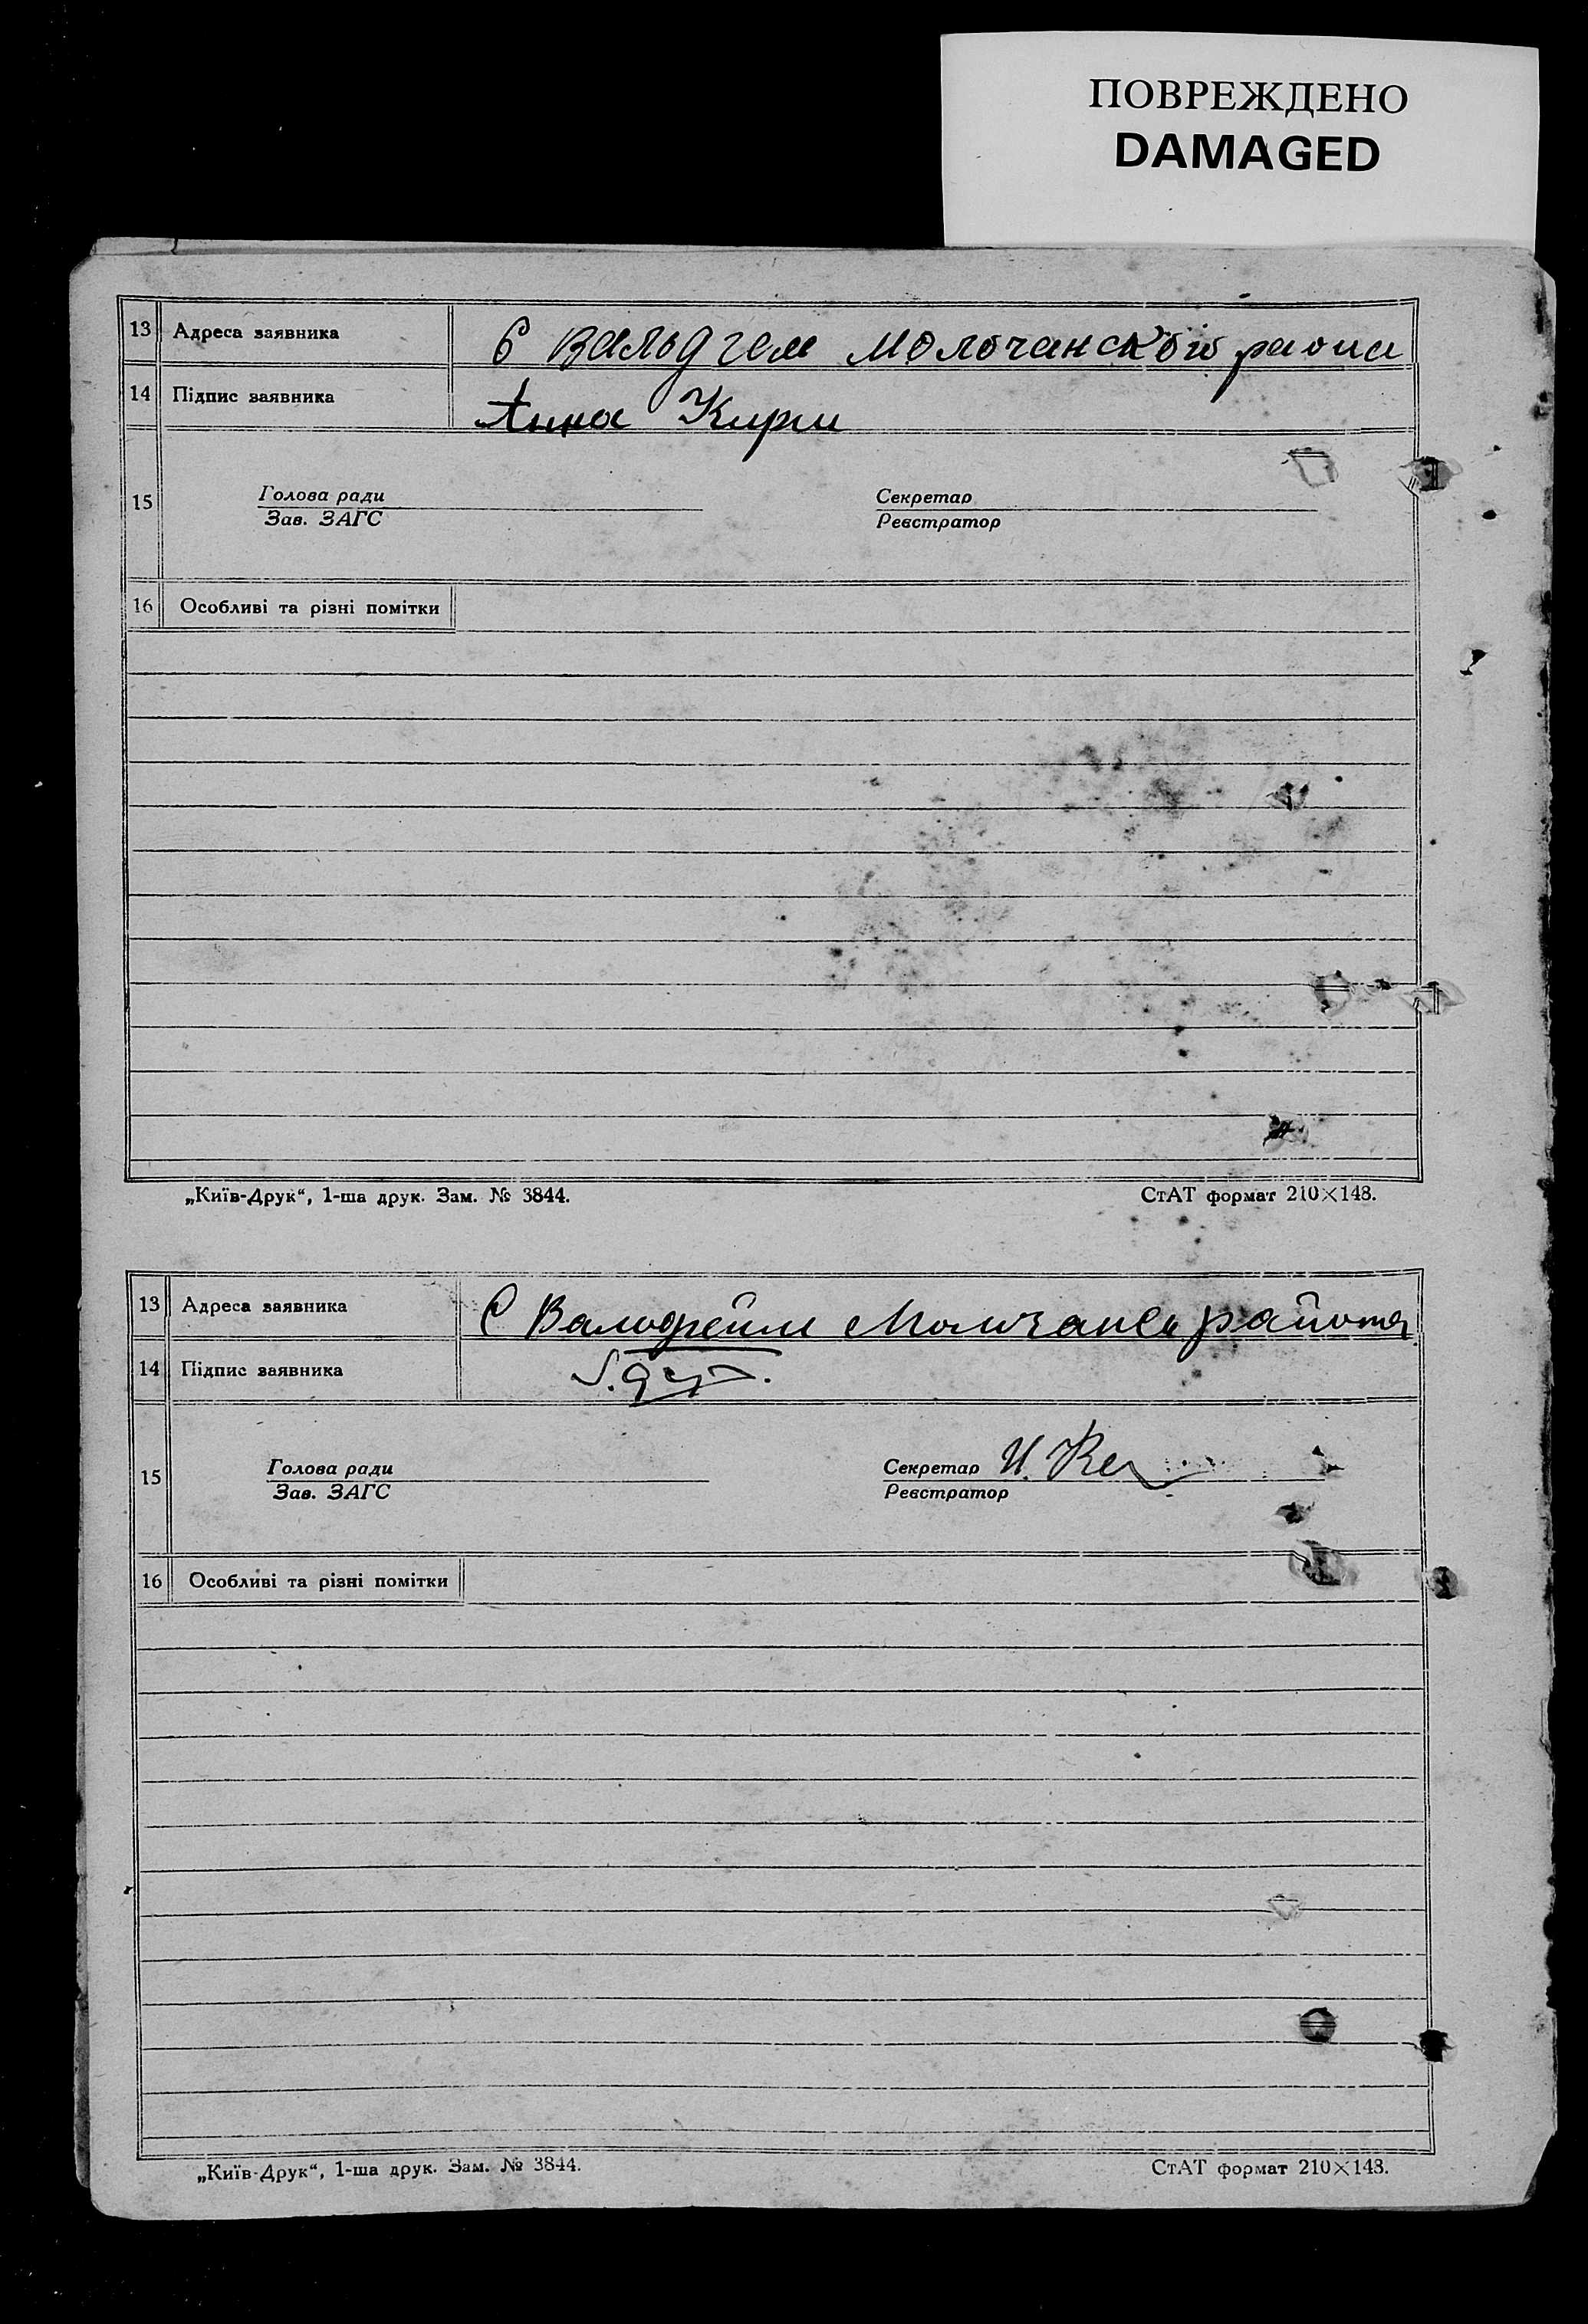 ПОВРЕЖДЕНО
DAMAGED
13 Адреса заявника С Вальдгем Молочанской раона
14 Підпис заявника Анна
15 Голова ради Секретар
Зав. ЗАГС Реєстратор
16 Особливі та різні помітки
„Київ-Друк“, 1-ша друк. Зам. № 3844. СтАТ формат 210×148.
13 Адреса заявника С района
14 Підпис заявника
15 Голова ради Секретар И.
Зав. ЗАГС Реєстратор
16 Особливі та різні помітки
„Київ-Друк“, 1-ша друк. Зам. № 3844. СтАТ формат 210×148.